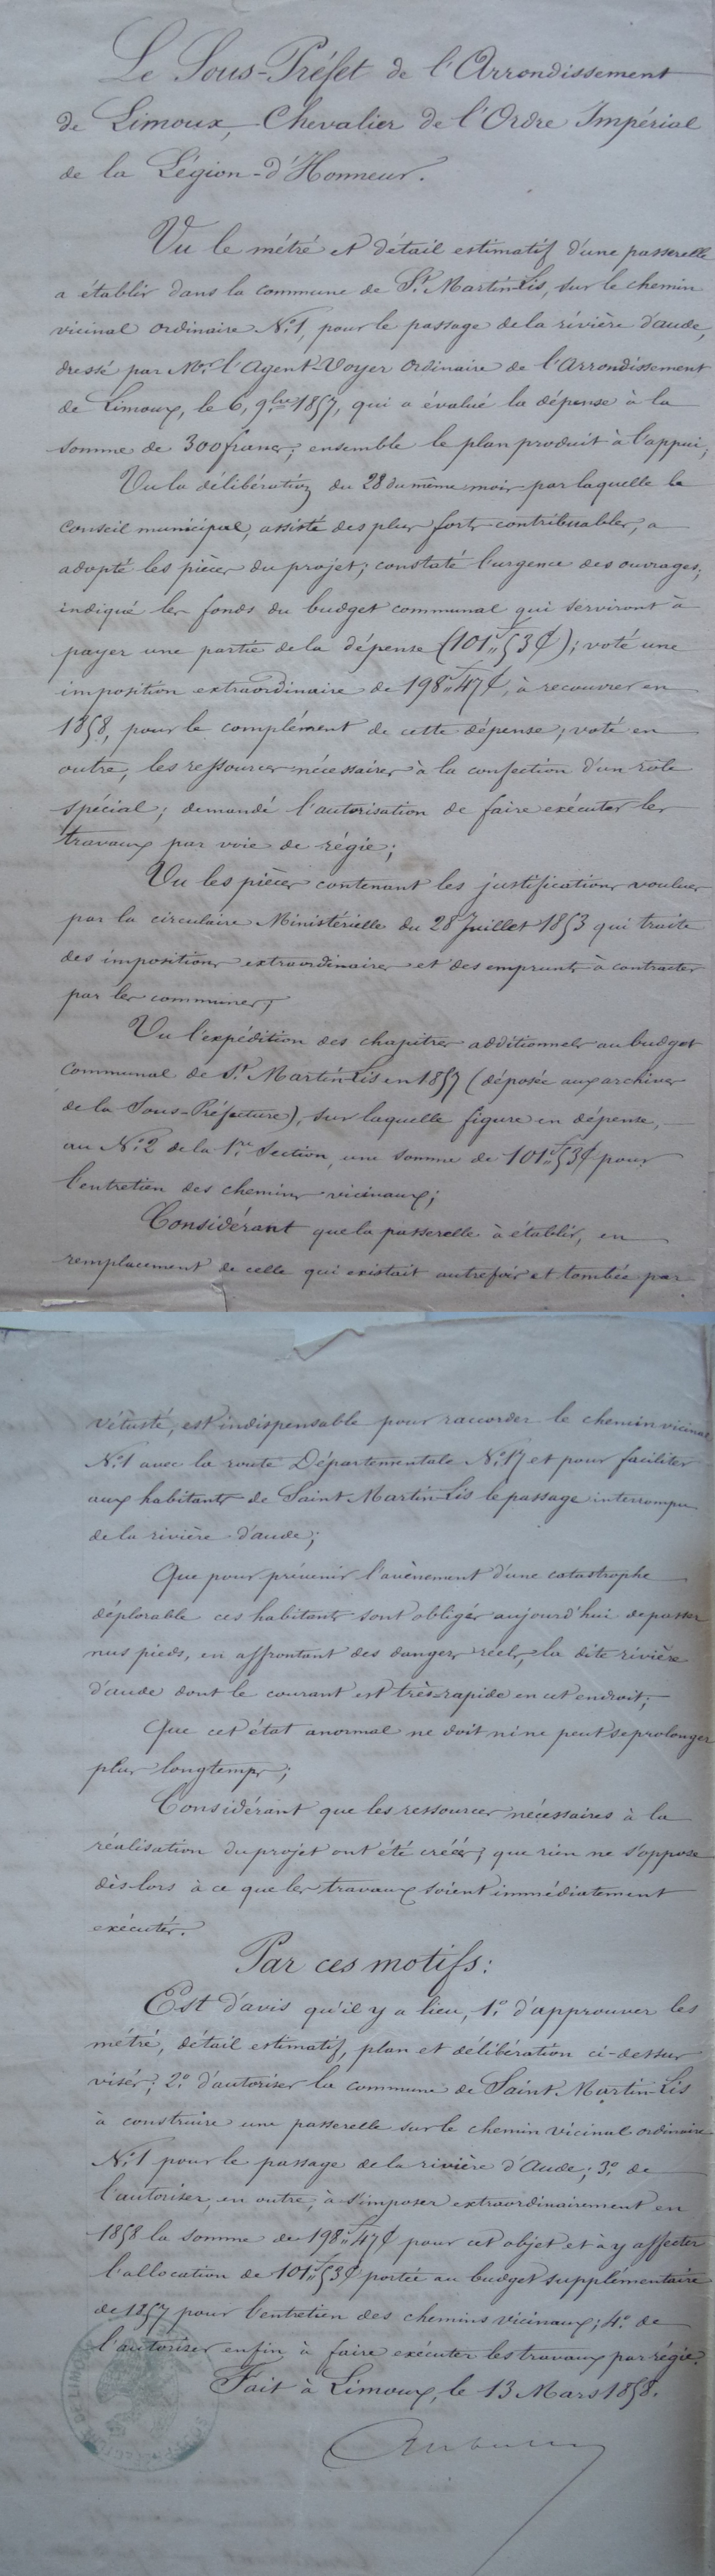 Le Sous-Préfet de l'Arrondissement
de Limoux, Chevalier de l'Ordre Impérial
de la Légion-d'Honneur.
Vu le métré et détail estimatif d'une passerelle
a établir dans la commune de St. Martin-Lis, sur le chemin
vicinal ordinaire N°. 1, pour le passage de la rivière d'aude,
dressé par Mr. l'Agent-Voyer ordinaire de l'Arrondissement
de Limoux, le 6, 9bre 1857, qui a évalué la dépense à la
somme de 300 francs; ensemble le plan produit à l'appui;
Vu la délibération du 28 du même mois par laquelle le
Conseil municipal, assisté des plus forts contribuables, a
adopté les pièces du projet; constaté l'urgence des ouvrages;
indiqué les fonds du budget communal qui serviront à
payer une partie de la dépense (101f,,53c); voté une
imposition extraordinaire de 198f,,47c, à recouvrer en
1858, pour le complément de cette dépense; voté en
outre, les ressources nécessaires à la confection d'un role
spécial; demandé l'autorisation de faire exécuter les
travaux par voie de régie;
Vu les pièces contenant les justifications voulues
par la circulaire Ministérielle du 28 Juillet 1853 qui traite
des impositions extraordinaires et des emprunts à contracter
par les communes;
Vu l'expédition des chapitres additionnels au budget
Communal de St. Martin-Lis en 1857 (déposée aux archives
de la Sous-Préfecture), sur laquelle figure en dépense,
au N°. 2 de la 1re. Section, une somme de 101f,,53c pour
l'entretien des chemins vicinaux;
Considérant que la passerelle à établir, en
remplacement de celle qui existait autrefois et tombée par
vétusté, est indispensable pour raccorder le chemin vicinal
N°. 1 avec la route Départementale N°. 17 et pour faciliter
aux habitants de Saint Martin-Lis le passage interrompu
de la rivière d'aude;
Que pour prévenir l'avènement d'une catastrophe
déplorable ces habitants sont obligés aujourd'hui de passer
nus pieds, en affrontant des dangers réels, la dite rivière
d'aude dont le courant est très-rapide en cet endroit;
Que cet état anormal ne doit ni ne peut se prolonger
plus longtemps;
Considérant que les ressources nécessaires à la
réalisation du projet ont été créés; que rien ne s'oppose
dès-lors à ce que les travaux soient immédiatement
exécutés.
Par ces motifs:
Est d'avis qu'il y a lieu, 1°. d'approuver les
métré, détail estimatif, plan et délibération ci-dessus
visés; 2°. d'autoriser la commune de Saint Martin-Lis
à construire une passerelle sur le chemin vicinal ordinaire
N°. 1 pour le passage de la rivière d'Aude; 3°. de
l'autoriser, en outre, à s'imposer extraordinairement en
1858 la somme de 198f,,47c pour cet objet et à y affecter
l'allocation de 101f,,53c portée au budget supplémentaire
de 1857 pour l'entretien des chemins vicinaux; 4°. de
l'autoriser enfin à faire exécuter les travaux par régie.
Fait à Limoux, le 13 Mars 1858.